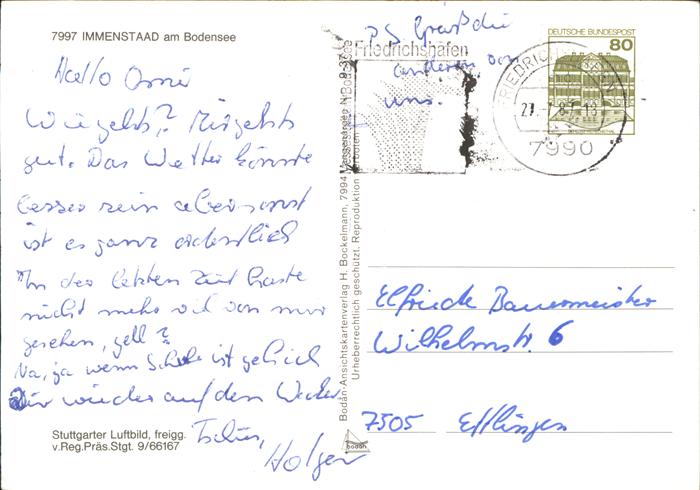 7997 IMMENSTAAD am Bodensee
Hallo Omi
Wie gehts? Mir gehts
gut. Das Wetter könnte
besser sein aber sonst
ist es ganz ordentlich
In der letzten Zeit haste
nicht mehr viel von mir
gesehen, gell?
Na, ja wenn Schule ist geh ich
Dir wieder auf den Wecker
Tschüs,
Holger
Stuttgarter Luftbild, freigg.
v.Reg.Präs.Stgt. 9/66167
PS Grüß die
anderen von
uns.
Friedrichshafen
DEUTSCHE BUNDESPOST
80
FRIEDRICHSHAFEN
7990
Bodan-Ansichtskartenverlag H. Bockelmann, 7994
Urheberrechtlich geschützt. Reproduktion verboten
bodan
Elfriede Bauermeister
Wilhelmstr. 6
7505 Ettlingen